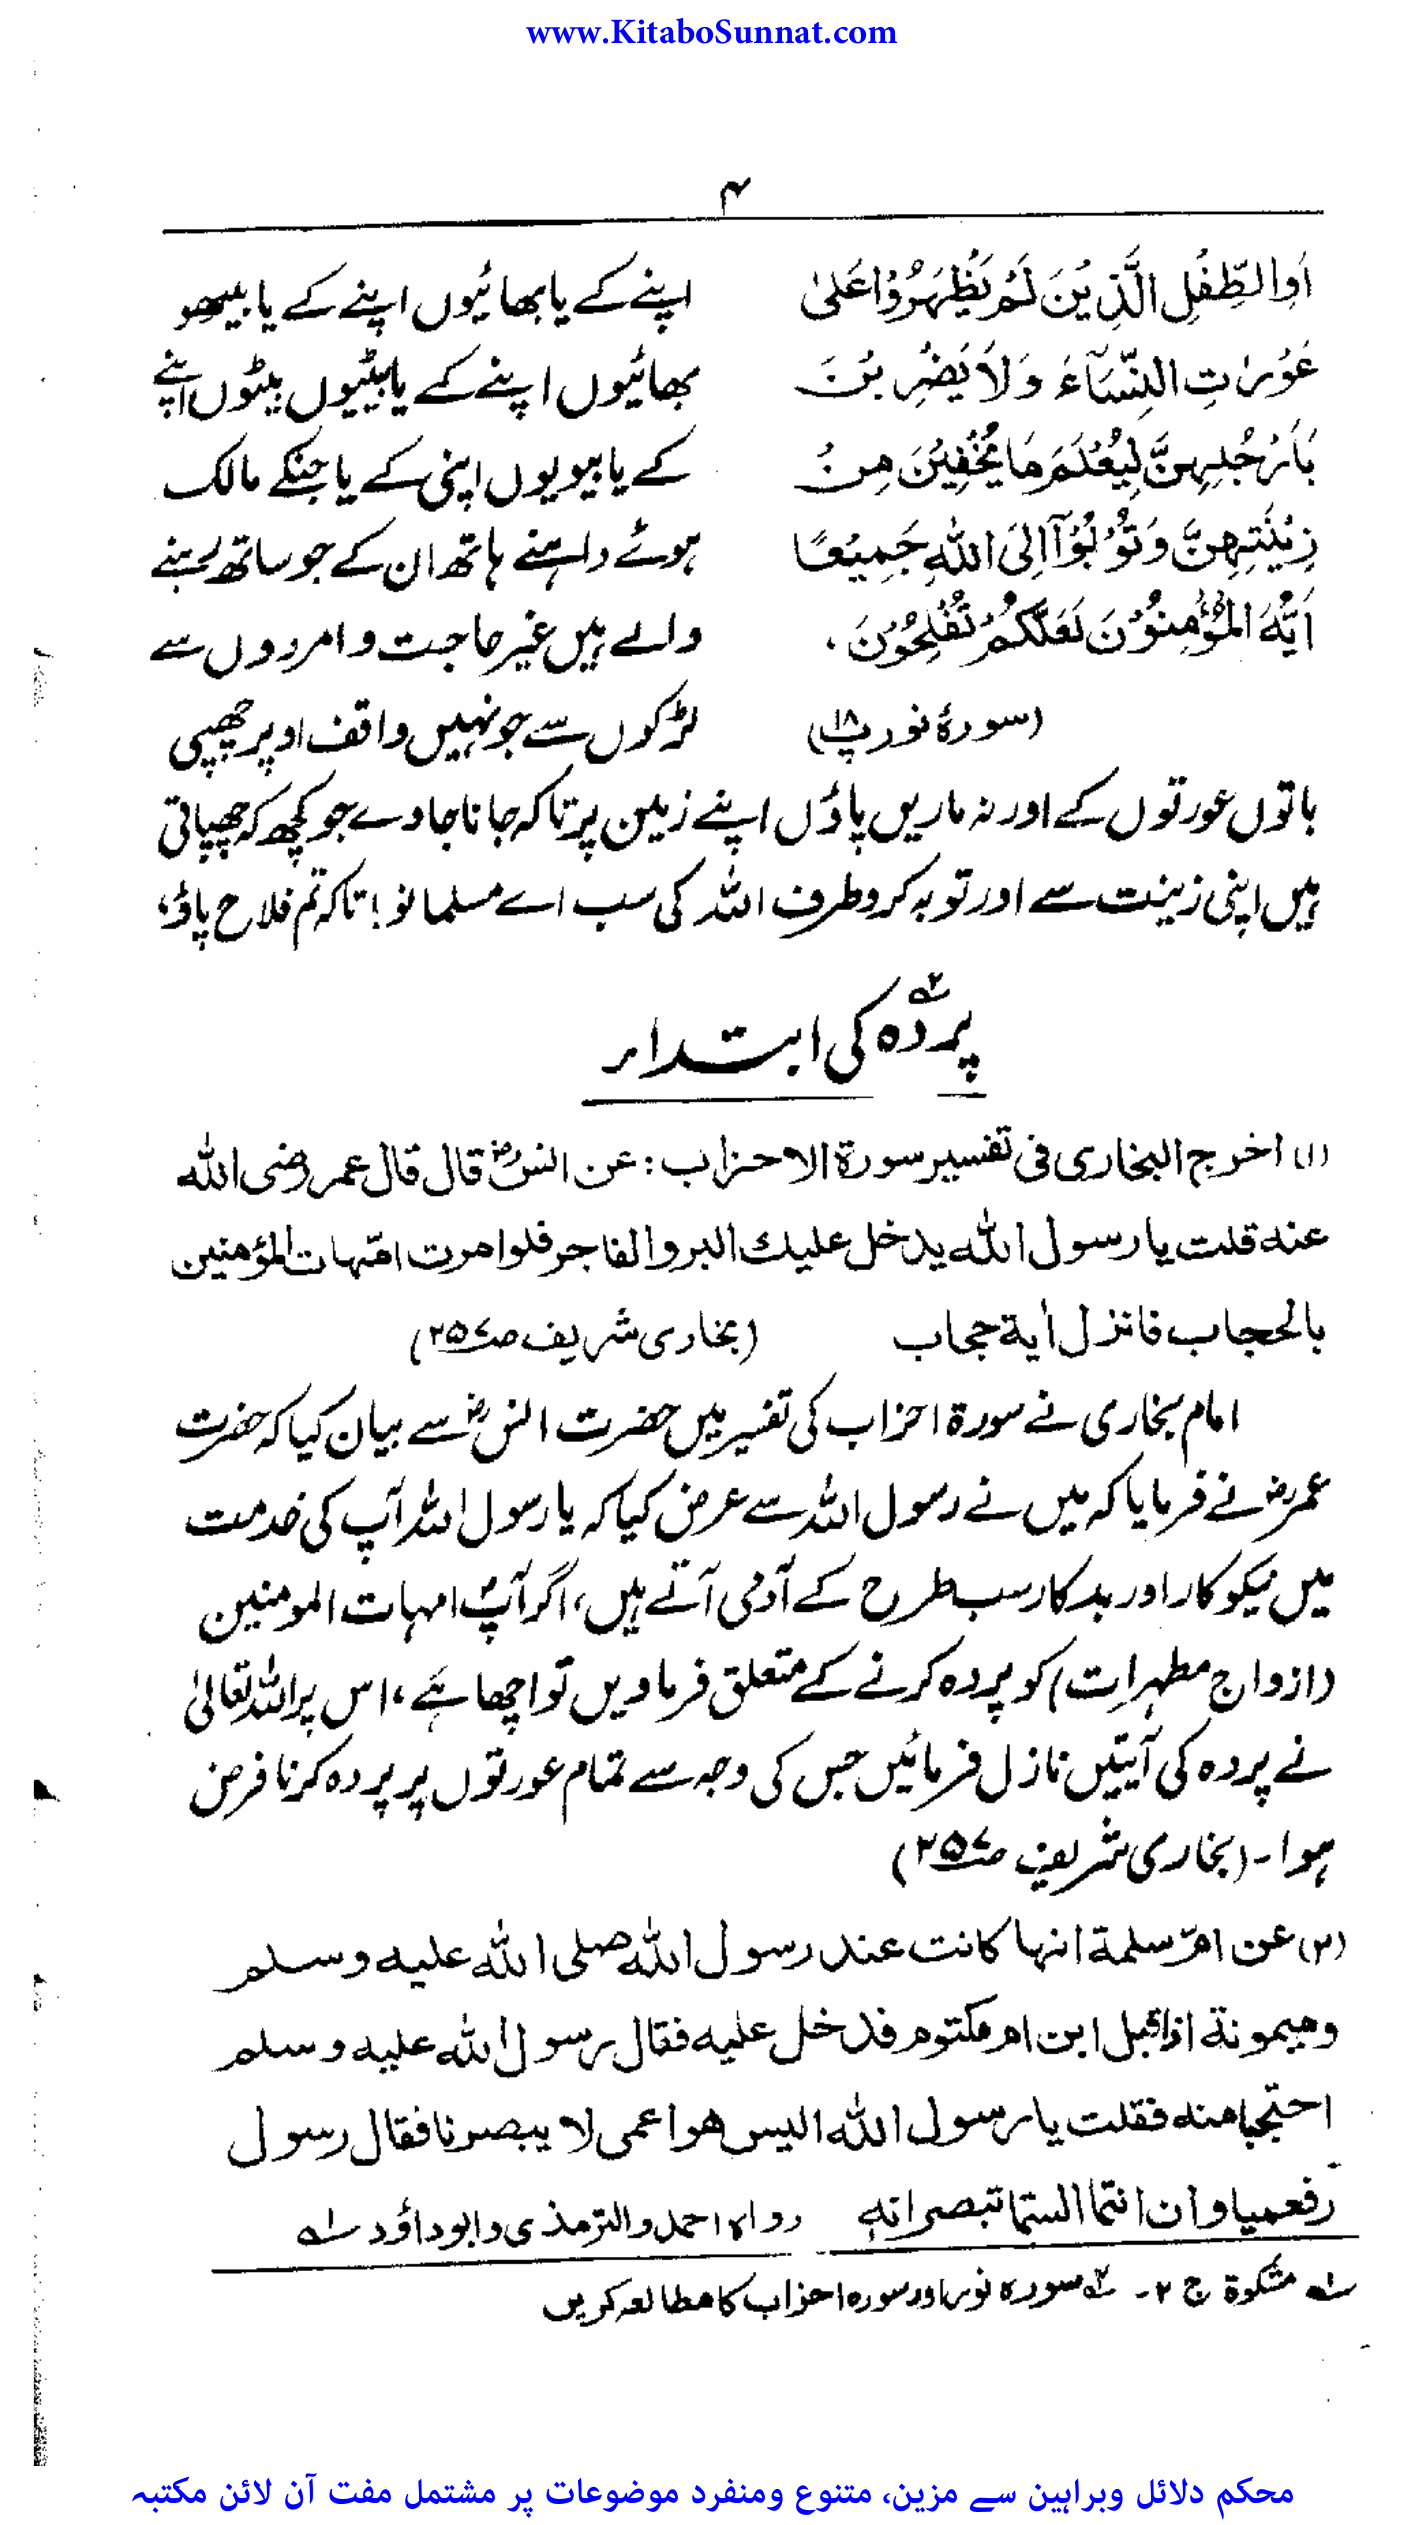 www.KitaboSunnat.com
۴
اَوِ الطِّفْلِ الَّذِيْنَ لَمْ يَظْهَرُوْا عَلىٰ
عَوْرٰتِ النِّسَآءَ وَلَا يَضْرِبْنَ
بِاَرْجُلِهِنَّ لِيُعْلَمَ مَا يُخْفِيْنَ مِنْ
زِيْنَتِهِنَّ وَتُوْبُوْآ اِلَى اللّٰهِ جَمِيْعًا
اَيُّهَ الْمُؤْمِنُوْنَ لَعَلَّكُمْ تُفْلِحُوْنَ.
(سورۂ نور پ۱۸)
اپنے کے یا بھائیوں اپنے کے یا بیٹھو
بھائیوں اپنے کے یا بیٹیوں بیٹوں اپنے
کے یا بیویوں اپنی کے یا جنکے مالک
ہوئے داہنے ہاتھ ان کے جو ساتھ رہنے
والے ہیں غیر حاجت و امردوں سے
لڑکوں سے جو نہیں واقف اوپر چھپی
باتوں عورتوں کے اور نہ ماریں پاؤں اپنے زمین پر تاکہ جانا جاوے جو کچھ کہ چھپاتی
ہیں اپنی زینت سے اور توبہ کرو طرف اللہ کی سب اے مسلمانو! تاکہ تم فلاح پاؤ،
پردہ ۲؎ کی ابتداء
(۱) اخرج البخاری فی تفسیر سورۃ الاحزاب: عن انسؓ قال قال عمر رضی اللہ
عنه قلت یا رسول اللہ یدخل علیك البر والفاجر فلوا مرت امّهات المؤمنین
بالحجاب فانزل اٰیة حجاب (بخاری شریف ص۲۵۷)
امام بخاری نے سورۃ احزاب کی تفسیر میں حضرت انسؓ سے بیان کیا کہ حضرت
عمرؓ نے فرمایا کہ میں نے رسول اللہ سے عرض کیا کہ یا رسول اللہ آپ کی خدمت
میں نیکوکار اور بدکار سب طرح کے آدمی آتے ہیں، اگر آپؐ امہات المومنین
(ازواج مطہرات) کو پردہ کرنے کے متعلق فرماویں تو اچھا ہے، اس پر اللہ تعالیٰ
نے پردہ کی آیتیں نازل فرمائیں جس کی وجہ سے تمام عورتوں پر پردہ کرنا فرض
ہوا۔ (بخاری شریف ص۲۵۷)
(۲) عن امّ سلمة انها كانت عند رسول اللہ صلی اللہ علیه وسلم
ومیمونة اذا قبل ابن ام مکتوم فدخل علیه فقال رسول اللہ علیه وسلم
احتجبا منه فقلت یا رسول اللہ الیس هوا عمی لا یبصرنا فقال رسول
رفعمیا وان انتما الستما تبصرانه رواہ احمد والترمذی وابوداؤد ۱؎
۱؎ مشکوٰۃ ج ۲۔ ۲؎ سورہ نور اور سورہ احزاب کا مطالعہ کریں
محکم دلائل وبراہین سے مزین، متنوع ومنفرد موضوعات پر مشتمل مفت آن لائن مکتبہ